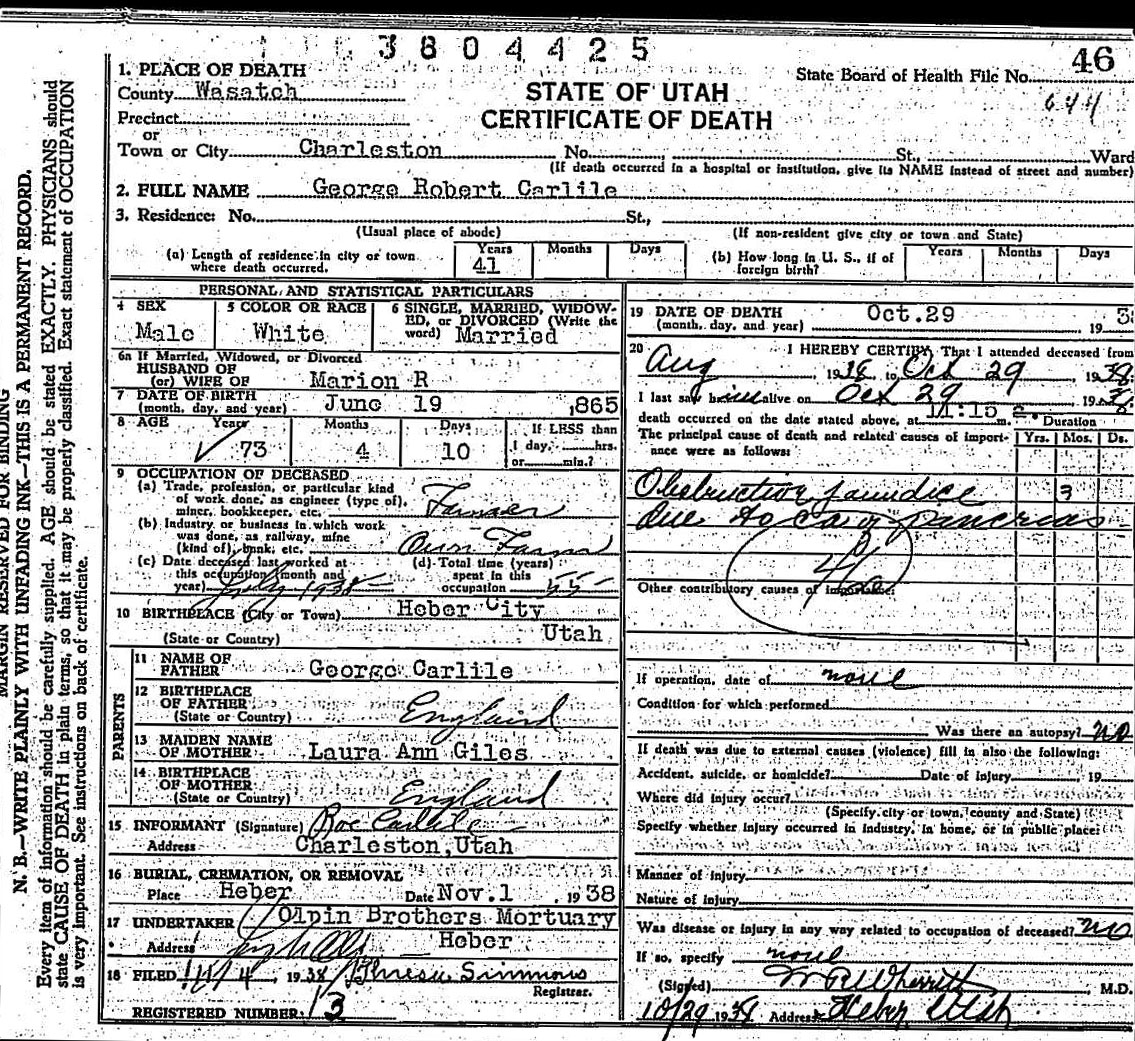 3804425
46
1. PLACE OF DEATH
State Board of Health File No.
644
County Wasatch
STATE OF UTAH
Precinct
CERTIFICATE OF DEATH
or
Town or City Charleston No. St., Ward
(If death occurred in a hospital or institution, give its NAME instead of street and number)
2. FULL NAME George Robert Carlile
3. Residence: No. St.,
(Usual place of abode) (If non-resident give city or town and State)
(a) Length of residence in city or town where death occurred. Years 41 Months Days
(b) How long in U. S., if of foreign birth? Years Months Days
PERSONAL AND STATISTICAL PARTICULARS
4 SEX Male
5 COLOR OR RACE White
6 SINGLE, MARRIED, WIDOW-
ED, or DIVORCED (Write the
word) Married
6a If Married, Widowed, or Divorced
HUSBAND OF
(or) WIFE OF Marion R
7 DATE OF BIRTH
(month, day, and year) June 19 ,865
8 AGE Years 73 Months 4 Days 10
If LESS than
1 day, hrs.
or min.?
9 OCCUPATION OF DECEASED
(a) Trade, profession, or particular kind
of work done, as engineer (type of),
miner, bookkeeper, etc. Farmer
(b) Industry or business in which work
was done, as railway, mine
(kind of), bank, etc. Own Farm
(c) Date deceased last worked at
this occupation (month and
year) July 1938
(d) Total time (years)
spent in this
occupation 55
10 BIRTHPLACE (City or Town) Heber City
(State or Country) Utah
PARENTS
11 NAME OF
FATHER George Carlile
12 BIRTHPLACE
OF FATHER
(State or Country) England
13 MAIDEN NAME
OF MOTHER Laura Ann Giles
14 BIRTHPLACE
OF MOTHER
(State or Country) England
15 INFORMANT (Signature) Roe Carlile
Address Charleston, Utah
16 BURIAL, CREMATION, OR REMOVAL
Place Heber Date Nov. 1 , 1938
17 UNDERTAKER Olpin Brothers Mortuary
Address Heber
18 FILED 11/4 , 1938 Simmons
Registrar.
REGISTERED NUMBER: 13
19 DATE OF DEATH
(month, day, and year) Oct. 29 19 3
20 I HEREBY CERTIFY, That I attended deceased from
Aug , 1938 to Oct 29 1938
I last saw him alive on Oct 29 , 1938
death occurred on the date stated above, at 11:15 a. m. Duration
The principal cause of death and related causes of import-
ance were as follows:
Yrs. Mos. Ds.
Obstructive jaundice 3
due to ca of pancreas
46
Other contributory causes of importance:
If operation, date of none
Condition for which performed
Was there an autopsy? no
If death was due to external causes (violence) fill in also the following:
Accident, suicide, or homicide? Date of Injury , 19
Where did injury occur?
(Specify city or town, county and State)
Specify whether injury occurred in industry, in home, or in public place:
Manner of injury
Nature of Injury
Was disease or injury in any way related to occupation of deceased? no
If so, specify none
(Signed) W R Wherritt , M.D.
10/29 1938 Address Heber, Utah
MARGIN RESERVED FOR BINDING
N. B.—WRITE PLAINLY WITH UNFADING INK—THIS IS A PERMANENT RECORD.
Every item of information should be carefully supplied. AGE should be stated EXACTLY. PHYSICIANS should
state CAUSE OF DEATH in plain terms, so that it may be properly classified. Exact statement of OCCUPATION
is very important. See instructions on back of certificate.